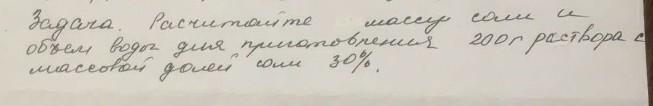 Задача. Расчитайте массу соли и
объем воды для приготовления 200г раствора с
массовой долей соли 30%.